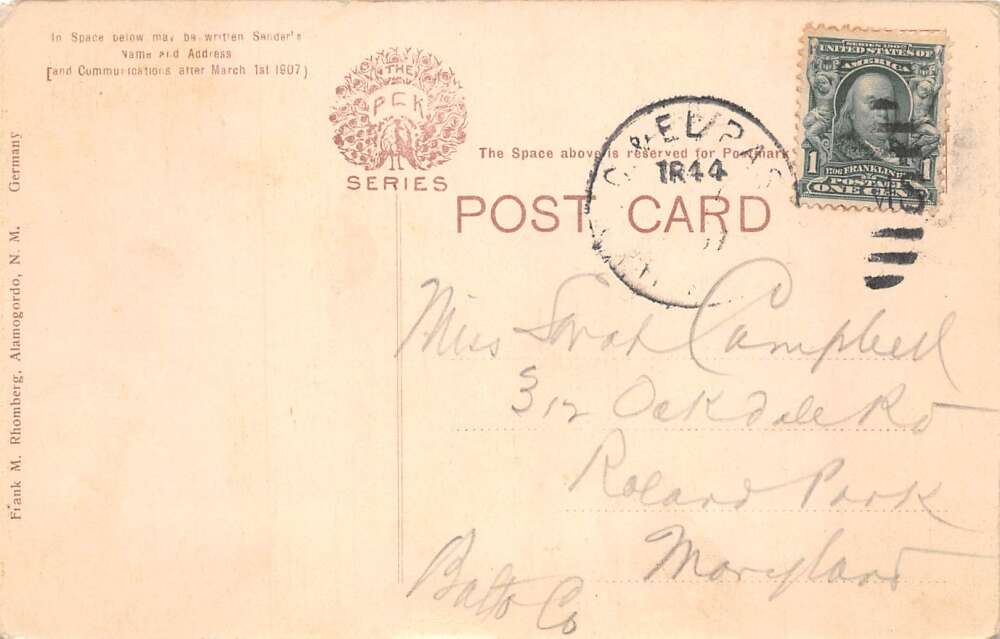 In Space below may be written Sender's
Name and Address
[and Communications after March 1st 1907)
THE
PCK
SERIES
The Space above is reserved for Postmark
POST CARD
& EL PAS
TR 44
SERIES 1902
UNITED STATES OF
AMERICA
1 1
FRANKLIN
POSTAGE
ONE CENT
Miss Sarah Campbell
312 Oakdale Rd
Roland Park
Maryland
Balto Co
Frank M. Rhomberg, Alamogordo, N. M. Germany